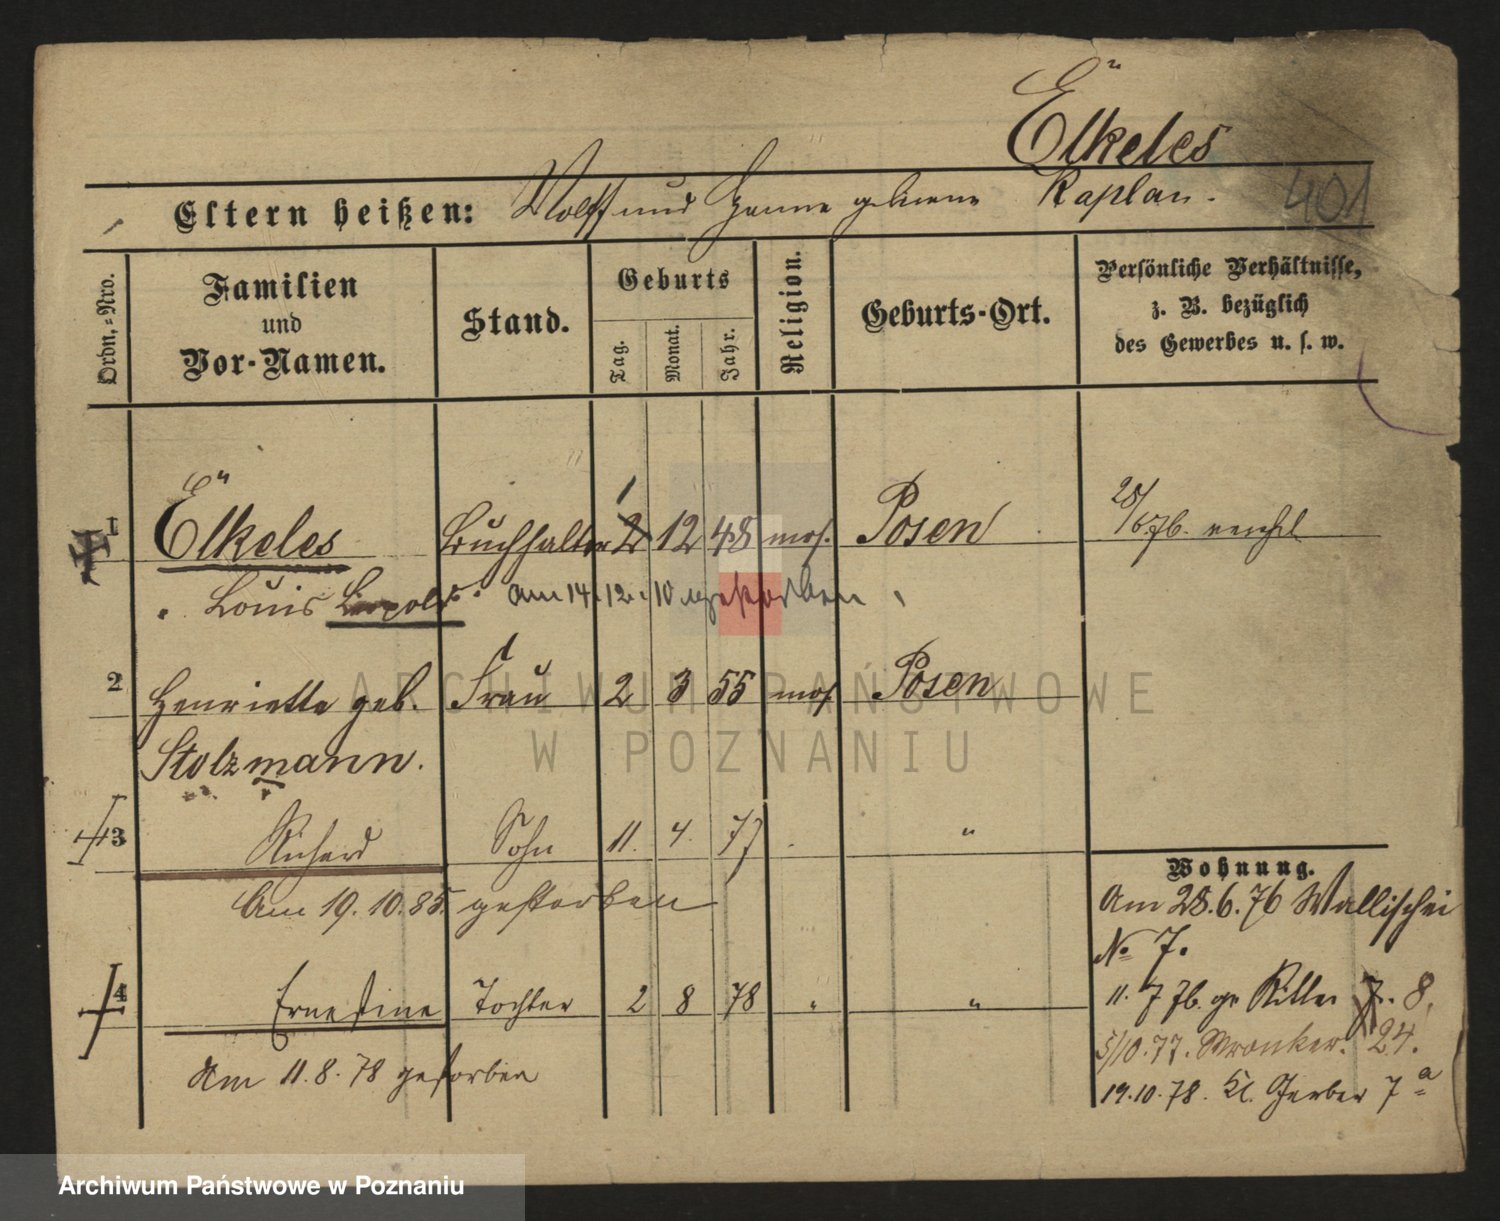 Elkeles
Eltern heißen: Wolff und Hanne geborene Kaplan.
401
Ordn.-Nro.
Familien
und
Vor-Namen.
Stand.
Geburts
Tag.
Monat.
Jahr.
Religion.
Geburts-Ort.
Persönliche Verhältnisse,
z. B. bezüglich
des Gewerbes u. s. w.
1 Elkeles Buchhalter 2 1 12 48 mos. Posen 28/6 76.
Louis Leopold am 14.12.10 gestorben.
2 Henriette geb. Frau 2 3 55 mos. Posen
Stolzmann.
3 Richard Sohn 11. 4. 77 "
Am 19.10.85. gestorben
4 Ernestine Tochter 2 8 78 " "
Am 11.8.78 gestorben
Wohnung.
Am 28.6.76 Wallischei
No 7.
11. 7 76. gr Ritter 7. 8.
5/10.77. Wronker. 24.
19.10.78. Kl. Gerber 7 a
ARCHIWUM PAŃSTWOWE
W POZNANIU
Archiwum Państwowe w Poznaniu